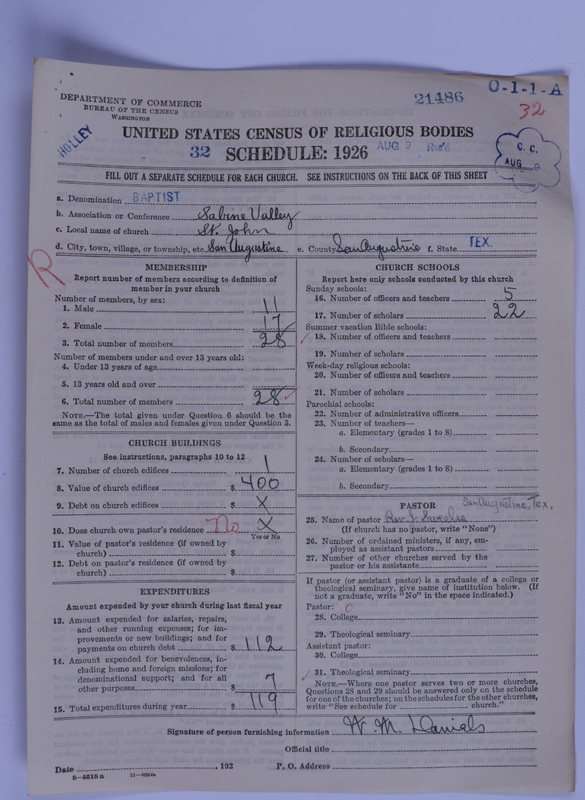 DEPARTMENT OF COMMERCE
BUREAU OF THE CENSUS
WASHINGTON
21486
0-1-1-A
32
HOLLEY
UNITED STATES CENSUS OF RELIGIOUS BODIES
32 SCHEDULE: 1926 AUG 9 Rec'd
C. C.
AUG 9
FILL OUT A SEPARATE SCHEDULE FOR EACH CHURCH. SEE INSTRUCTIONS ON THE BACK OF THIS SHEET
a. Denomination BAPTIST
b. Association or Conference Sabine Valley
c. Local name of church St. John
d. City, town, village, or township, etc. San Augustine e. County San Augustine f. State TEX.
R
MEMBERSHIP
Report number of members according to definition of
member in your church
Number of members, by sex:
1. Male 11
2. Female 17
3. Total number of members 28
Number of members under and over 13 years old:
4. Under 13 years of age
5. 13 years old and over
6. Total number of members 28
NOTE.—The total given under Question 6 should be
same as the total of males and females given under Question 3.
CHURCH BUILDINGS
See instructions, paragraphs 10 to 12
7. Number of church edifices 1
8. Value of church edifices $ 400
9. Debt on church edifices $ X
10. Does church own pastor's residence No X
Yes or No
11. Value of pastor's residence (if owned by
church) $
12. Debt on pastor's residence (if owned by
church) $
EXPENDITURES
Amount expended by your church during last fiscal year
13. Amount expended for salaries, repairs,
and other running expenses; for im-
provements or new buildings; and for
payments on church debt $ 112
14. Amount expended for benevolences, in-
cluding home and foreign missions; for
denominational support; and for all
other purposes $ 7
15. Total expenditures during year $ 119
CHURCH SCHOOLS
Report here only schools conducted by this church
Sunday schools:
16. Number of officers and teachers 5
17. Number of scholars 22
Summer vacation Bible schools:
18. Number of officers and teachers
19. Number of scholars
Week-day religious schools:
20. Number of officers and teachers
21. Number of scholars
Parochial schools:
22. Number of administrative officers
23. Number of teachers—
a. Elementary (grades 1 to 8)
b. Secondary
24. Number of scholars—
a. Elementary (grades 1 to 8)
b. Secondary
PASTOR San Augustine, Tex,
25. Name of pastor Rev.
(If church has no pastor, write "None")
26. Number of ordained ministers, if any, em-
ployed as assistant pastors
27. Number of other churches served by the
pastor or his assistants
If pastor (or assistant pastor) is a graduate of a college or
theological seminary, give name of institution below. (If
not a graduate, write "No" in the space indicated.)
Pastor: 0
28. College
29. Theological seminary
Assistant pastor:
30. College
31. Theological seminary
NOTE.—Where one pastor serves two or more churches,
Questions 28 and 29 should be answered only on the schedule
for one of the churches; on the schedules for the other churches,
write "See schedule for church."
Signature of person furnishing information W. M. Daniels
Official title
Date , 192 P. O. Address